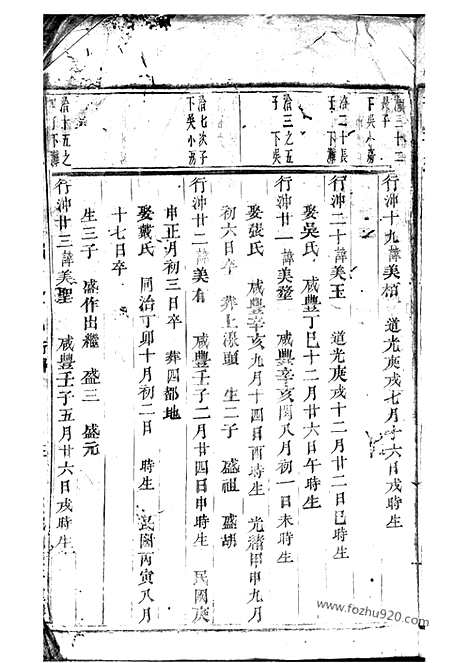 行沖十九諱美楨 道光庚戌七月十六日戌時生
行沖二十諱美玉 道光庚戌十二月廿二日巳時生
娶吳氏 咸豐丁巳十二月廿六日午時生
行沖廿一諱美 咸豐辛亥閏八月初一日未時生
娶張氏 咸豐辛亥九月十四日酉時生 光緒甲申九月
初六日卒 葬上 頭 生二子 盛祖 盛胡
行沖廿二諱美 咸豐壬子二月廿四日申時生 民國庚
申正月初三日卒 葬四都地
娶戴氏 同治丁卯十月初二日 時生 民國丙寅八月
十七日卒
生三子 盛作出繼 盛三 盛元
行沖廿三諱美聖 咸豐壬子五月廿六日戌時生
三十二
下吳小
二十長
子下
洽三之五
子下吳
洽七次子
下吳小
洽十五之
子下
www.fozhu920.com